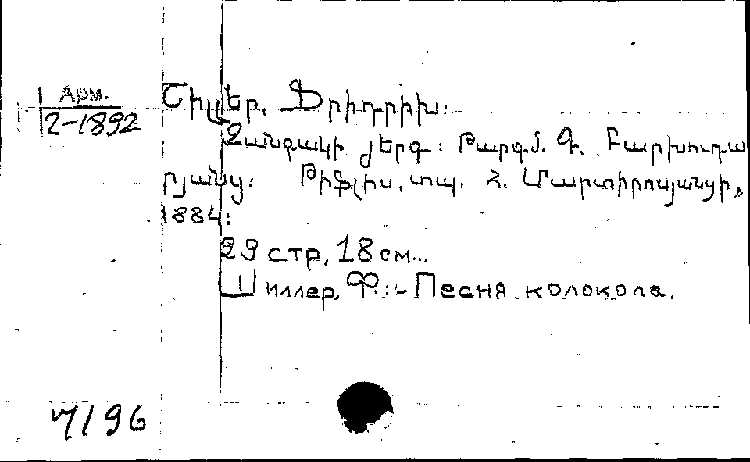 Арм.
2-1892
Շիլլեր, Ֆրիդրիխ:
Զանգակի յերգ: Թարգմ. Գ. Բարխուդա
րյանց: Թիֆլիս, տպ. Հ. Մարտիրոսյանցի,
1884:
29 стр, 18 см...
Шиллер, Ф.:- Песня колокола.
7196